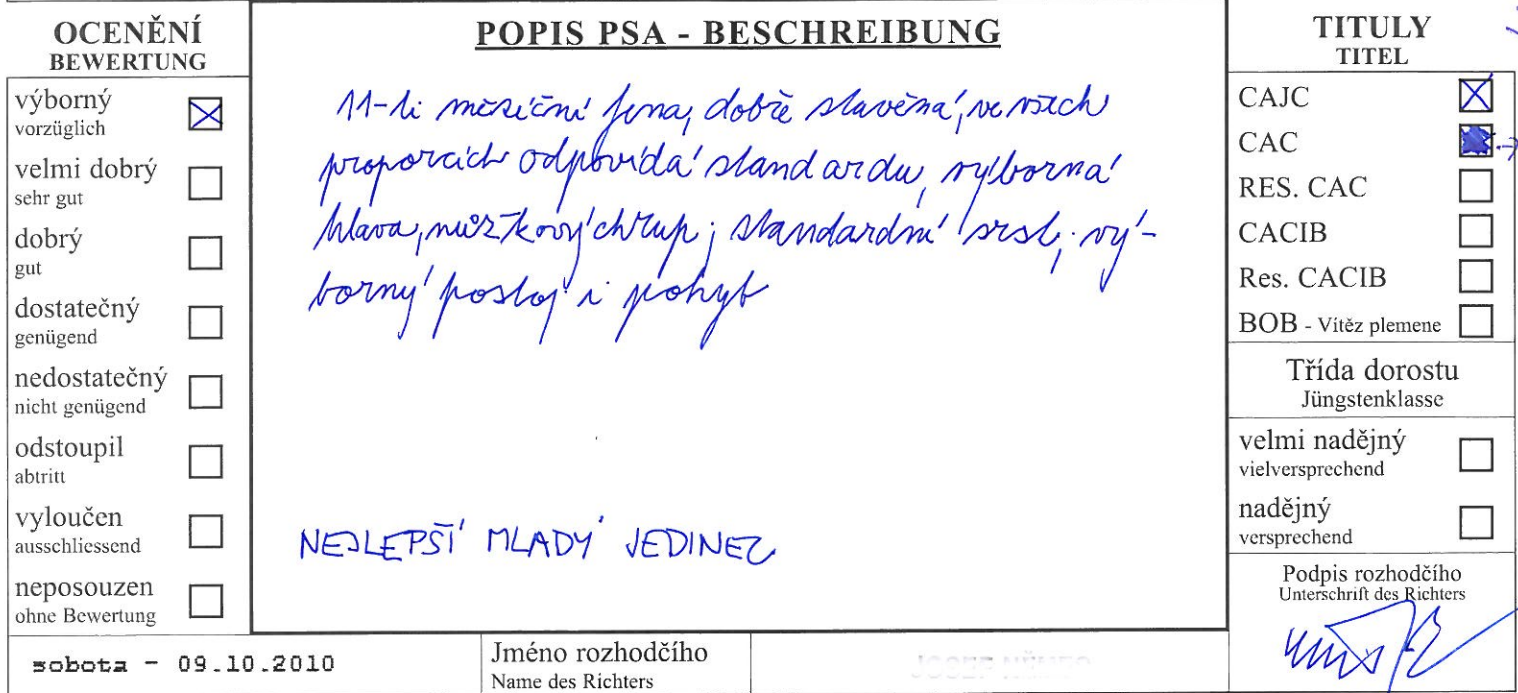 OCENĚNÍ
BEWERTUNG
výborný
vorzüglich
velmi dobrý
sehr gut
dobrý
gut
dostatečný
genügend
nedostatečný
nicht genügend
odstoupil
abtritt
vyloučen
ausschliessend
neposouzen
ohne Bewertung
POPIS PSA - BESCHREIBUNG
11-ti měsíční fena, dobře stavěná, ve všech
proporcích odpovídá standardu, výborná
hlava, nůžkový chrup; standardní srst; vý-
borný postoj i pohyb
NEJLEPŠÍ MLADÝ JEDINEC
TITULY
TITEL
CAJC
CAC
RES. CAC
CACIB
Res. CACIB
BOB - Vítěz plemene
Třída dorostu
Jüngstenklasse
velmi nadějný
vielversprechend
nadějný
versprechend
Podpis rozhodčího
Unterschrift des Richters
sobota - 09.10.2010
Jméno rozhodčího
Name des Richters